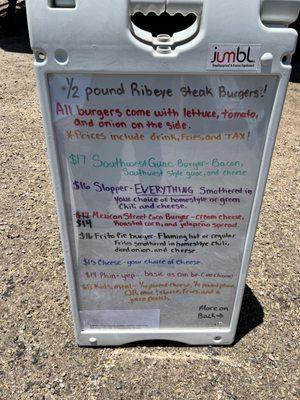 jumbl
1/2 pound Ribeye Steak Burgers!
All burgers come with lettuce, tomato,
and onion on the side.
*Prices include drink, Fries, and TAX!
$17 Southwest Guac Burger- Bacon,
Southwest style guac, and cheese
$16 Slopper- EVERYTHING Smothered in
your choice of homestyle or green
Chili and cheese.
Mexican Street Corn Burger - Cream cheese,
$14 Roasted corn, and jalapeño spread.
$16 Frito Pie Burger- Flaming hot or regular
Fritos smothered in homestyle Chili,
diced onion, and cheese
$15 Cheese - your choice of Cheese
$14 Plain-yep... basic as can be (no cheese)
$8 Kids meal - 1/4 pound cheese, 1/4 pound plain,
OR mac & cheese, fries, and a
More on
Back→